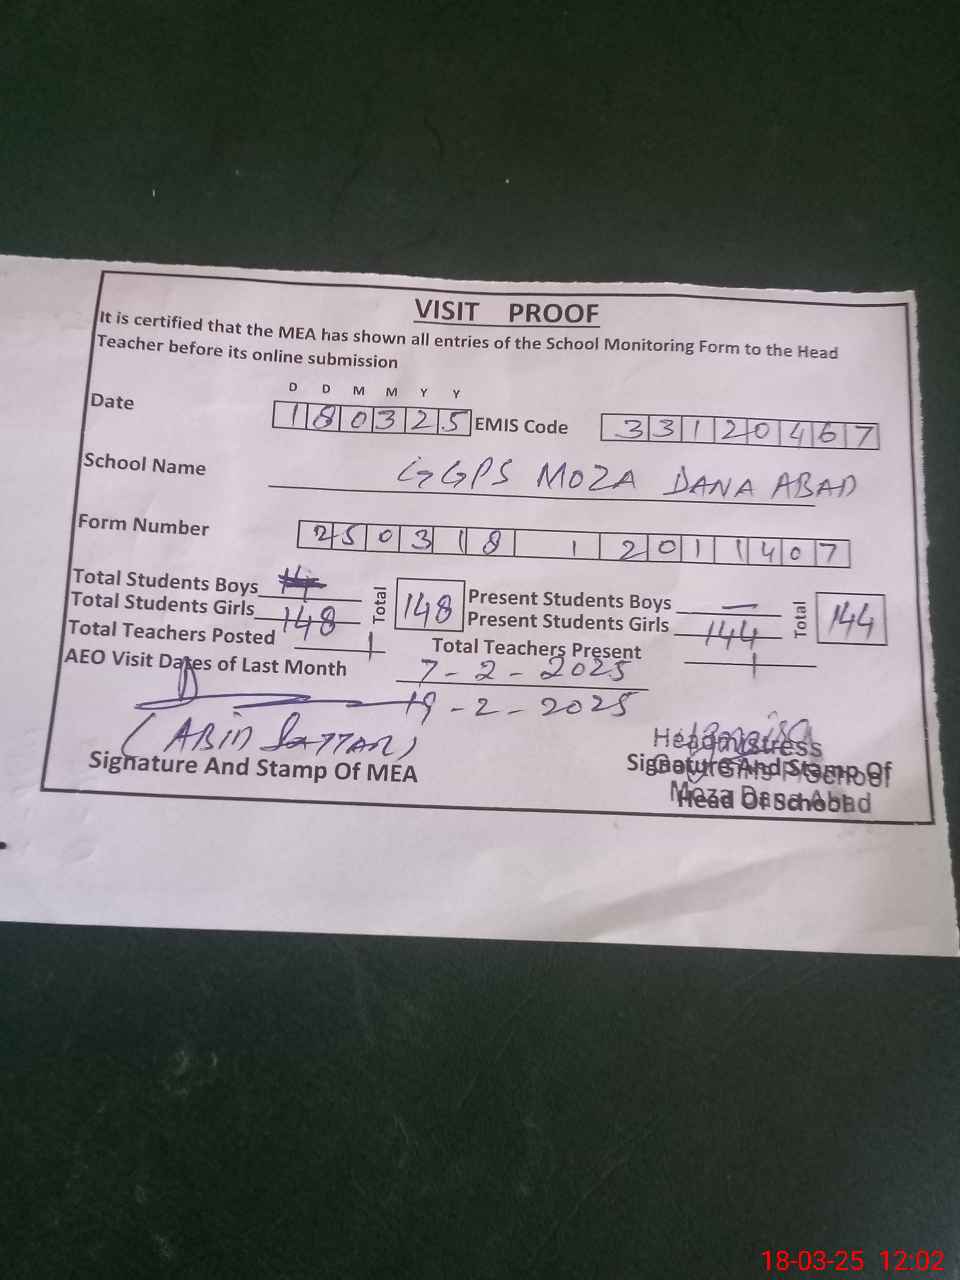 VISIT PROOF
It is certified that the MEA has shown all entries of the School Monitoring Form to the Head
Teacher before its online submission
D D M M Y Y
Date 180325 EMIS Code 33120467
School Name GGPS MOZA DANA ABAD
Form Number 250318 1 2011407
Total Students Boys Total 148 Present Students Boys — Total 144
Total Students Girls 148 Present Students Girls 144
Total Teachers Posted 1 Total Teachers Present 1
AEO Visit Dates of Last Month 7-2-2025
19-2-2025
(ABID SATTAR)
Signature And Stamp Of MEA
Headmistress
Signature And Stamp Of
Head Of School
Moza Dana Abad
18-03-25 12:02